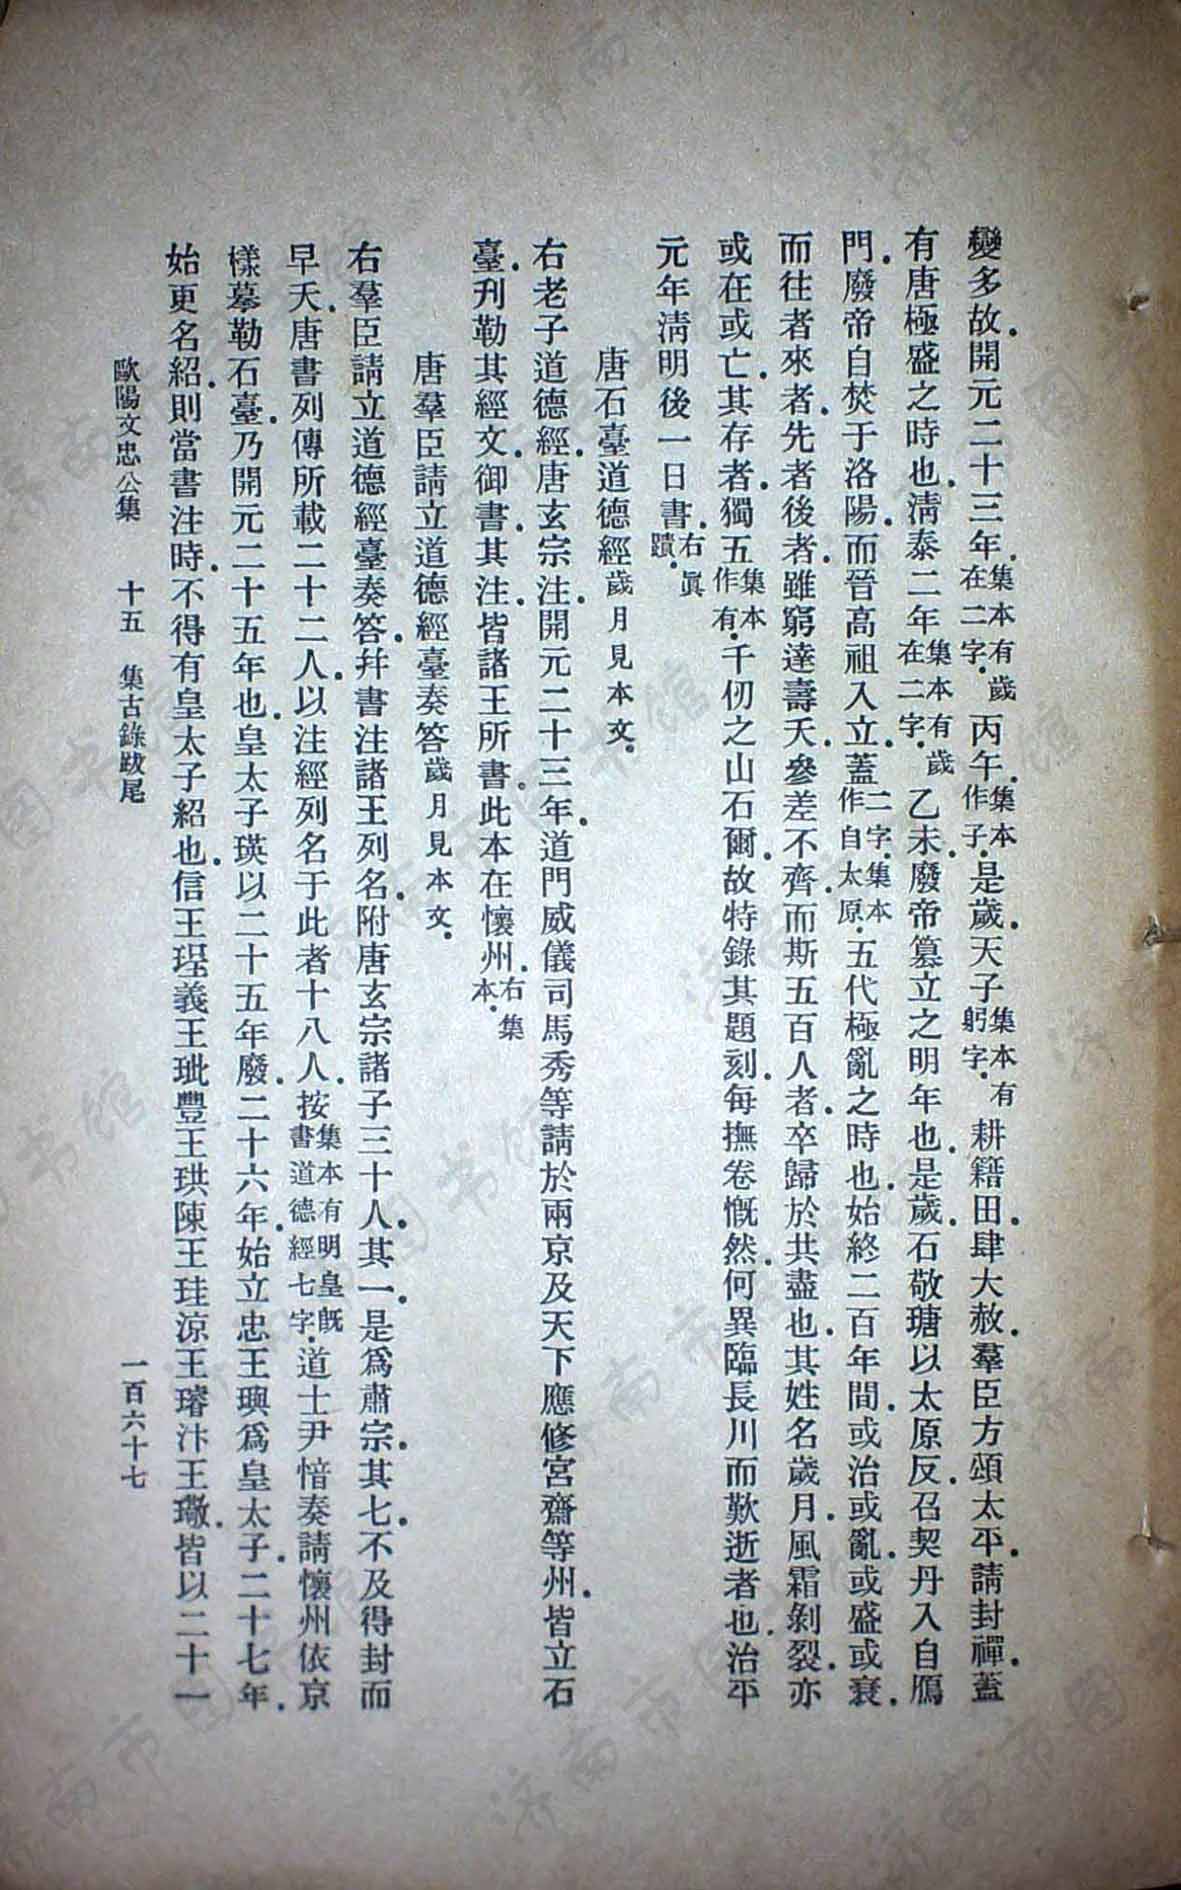 變多故．開元二十三年．集本有歲在二字．丙午．集本作子．是歲．天子集本有躬字．耕籍田．肆大赦．羣臣方頌太平．請封禪．蓋
有唐極盛之時也．清泰二年集本有歲在二字．乙未．廢帝篡立之明年也．是歲．石敬瑭以太原反．召契丹入自鴈
門．廢帝自焚于洛陽．而晉高祖入立．蓋二字．集本作自太原．五代極亂之時也．始終二百年間．或治或亂．或盛或衰．
而往者來者．先者後者．雖窮達壽夭．參差不齊．而斯五百人者．卒歸於共盡也．其姓名歲月．風霜剝裂．亦
或在或亡．其存者．獨五集本作有．千仞之山石爾．故特錄其題刻．每撫卷慨然．何異臨長川而歎逝者也．治平
元年清明後一日書．右眞蹟．
唐石臺道德經歲月見本文．
右老子道德經．唐玄宗注．開元二十三年．道門威儀司馬秀等請於兩京及天下應修宮齋等州．皆立石
臺．刊勒其經文．御書．其注．皆諸王所書．此本在懷州．右集本．
唐羣臣請立道德經臺奏答歲月見本文．
右羣臣請立道德經臺奏答．幷書注諸王列名．附唐玄宗諸子三十人．其一．是爲肅宗．其七．不及得封而
早夭．唐書列傳所載二十二人．以注經列名于此者十八人．按集本有明皇旣書道德經七字．道士尹愔奏請懷州依京
樣摹勒石臺．乃開元二十五年也．皇太子瑛以二十五年廢．二十六年．始立忠王璵爲皇太子．二十七年．
始更名紹．則當書注時．不得有皇太子紹也．信王瑝義王玼豐王珙陳王珪涼王璿汴王璥．皆以二十一
歐陽文忠公集　十五　集古錄跋尾　一百六十七